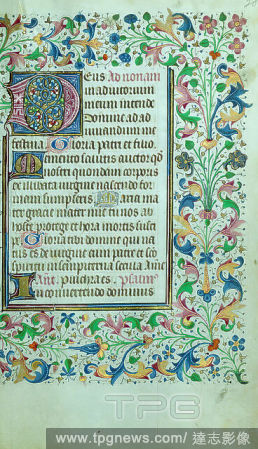 Deus Ad nonam
in adiutorium
meum intende
Domine ad ad
iuuandum me
festina. Gloria patri et filio.
Memento salutis auctor qd
nostri quondam corporis
ex illibata uirgine nascendo for
mam sumpseris. Maria ma
ter gracie mater mie tu nos ab
hoste protege et hora mortis susci
pe Gloria tibi domine qui na
tus es de uirgine cum patre et sco
spiritu in sempiterna secula Ame
Ant. Pulchra es. Psalm
In conuertendo dominus
TPG
www.tpgnews.com/達志影像